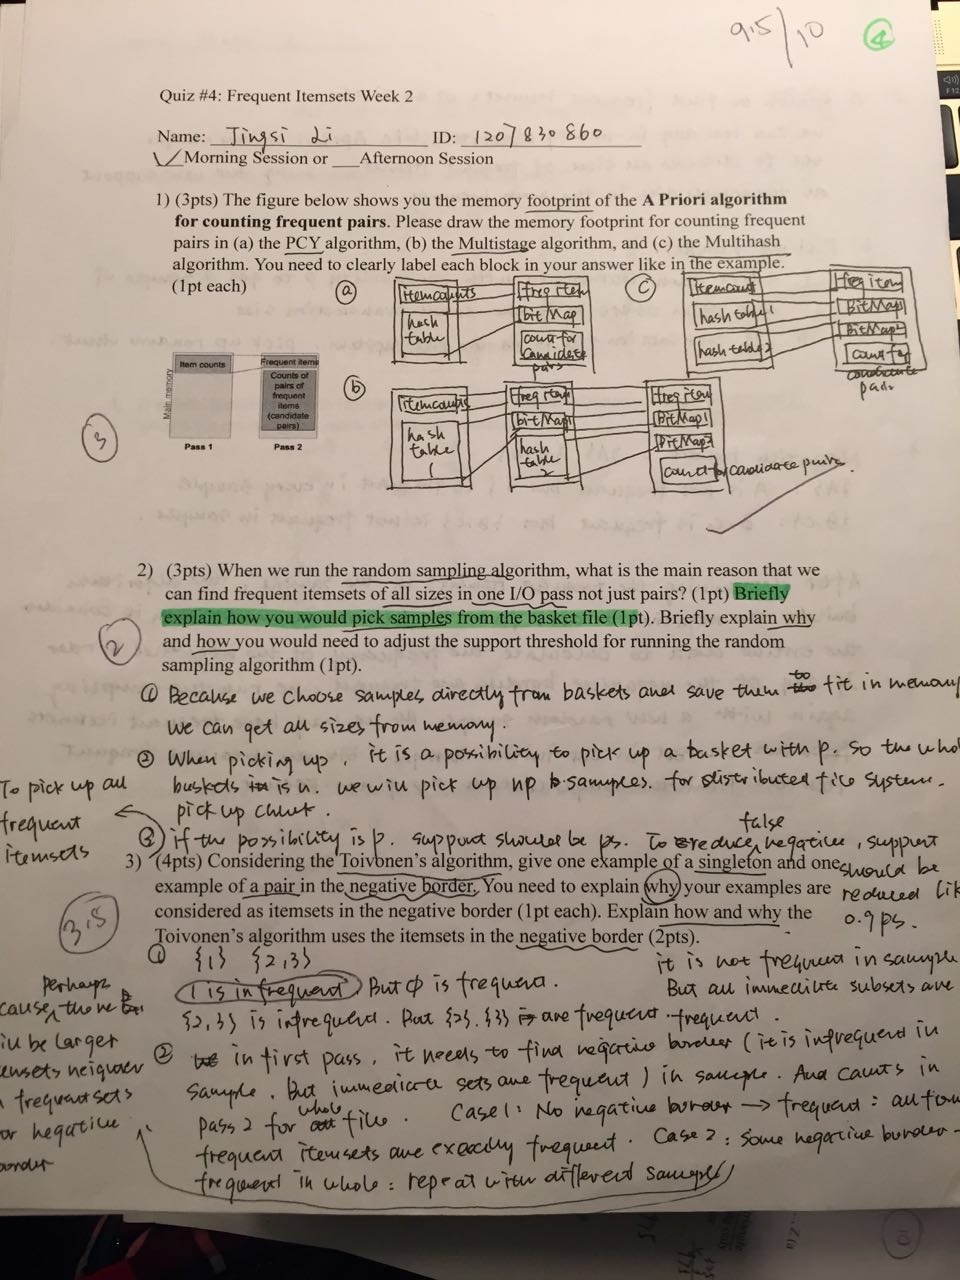 9.5/10 4
Quiz #4: Frequent Itemsets Week 2
Name: Jingsi Li ID: 1207830860
✓ Morning Session or ___ Afternoon Session
1) (3pts) The figure below shows you the memory footprint of the A Priori algorithm
for counting frequent pairs. Please draw the memory footprint for counting frequent
pairs in (a) the PCY algorithm, (b) the Multistage algorithm, and (c) the Multihash
algorithm. You need to clearly label each block in your answer like in the example.
(1pt each)
a
itemcounts
hash
table
freq item
bit Map
count for
candidate
pairs
c
itemcount
hash table 1
hash table 2
freq item
BitMap1
BitMap2
count for
candidate
pairs
Main memory
Item counts
Frequent items
Counts of
pairs of
frequent
items
(candidate
pairs)
Pass 1
Pass 2
3
b
itemcounts
hash
table
1
freq item
bitMap1
hash
table
2
freq item
BitMap1
BitMap2
count for candidate pairs.
2) (3pts) When we run the random sampling algorithm, what is the main reason that we
can find frequent itemsets of all sizes in one I/O pass not just pairs? (1pt) Briefly
explain how you would pick samples from the basket file (1pt). Briefly explain why
and how you would need to adjust the support threshold for running the random
sampling algorithm (1pt).
2
① Because we choose samples directly from baskets and save them to fit in memory
we can get all sizes from memory.
② When picking up, it is a possibility to pick up a basket with p. so the who
baskets is n. we will pick up np samples. for distributed file system.
pick up chunk.
To pick up all
frequent
itemsets
③ if the possibility is p. support should be ps. To reduce false negative, support
should be
reduced lik
0.9ps.
3) (4pts) Considering the Toivonen's algorithm, give one example of a singleton and one
example of a pair in the negative border. You need to explain why your examples are
considered as itemsets in the negative border (1pt each). Explain how and why the
Toivonen's algorithm uses the itemsets in the negative border (2pts).
3.5
① {1} {2,3}
1 is infrequent. But ϕ is frequent.
it is not frequent in sample
But all immediate subsets are
frequent.
{2,3} is infrequent. But {2}. {3} are frequent.
② in first pass, it needs to find negative border (it is infrequent in
sample. But immediate sets are frequent) in sample. And counts in
pass 2 for whole file. Case 1: No negative border → frequent: all
frequent itemsets are exactly frequent. Case 2: some negative border -
frequent in whole: repeat with different sample
perhaps
cause there
be larger
frequent sets
or negative
border